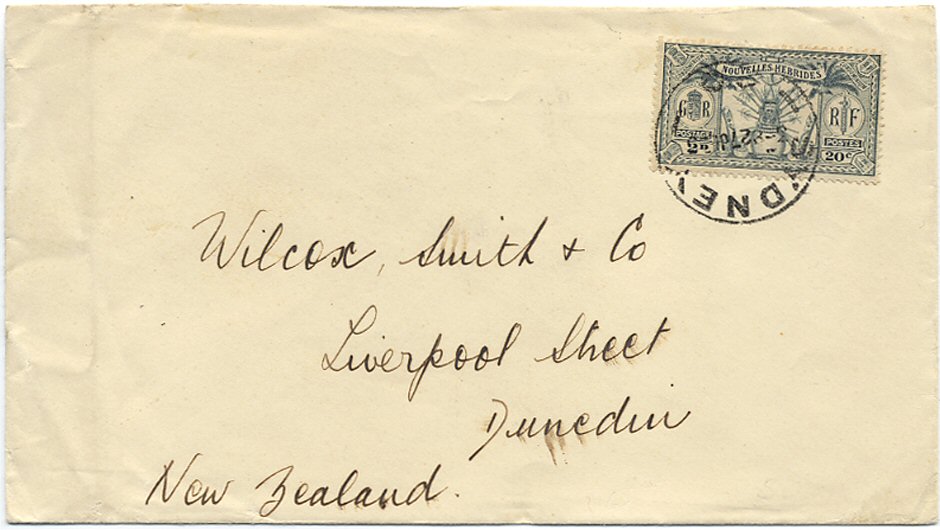 NOUVELLES HEBRIDES
G R R F
POSTAGE POSTES
2D 20c
SYDNEY
Wilcox, Smith & Co
Liverpool Street
Dunedin
New Zealand.